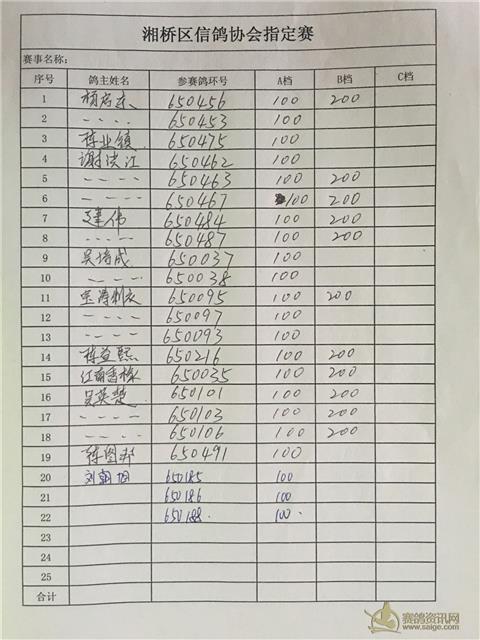 湘桥区信鸽协会指定赛
赛事名称:
序号 鸽主姓名 参赛鸽环号 A档 B档 C档
1 杨启东 650456 100 200
2 ---- 650453 100
3 650475 100
4 谢洪江 650462 100
5 ---- 650463 100 200
6 ---- 650467 100 200
7 建伟 650484 100 200
8 ---- 650487 100 200
9 吴培成 650037 100
10 ---- 650038 100
11 650095 100 200
12 ---- 650097 100
13 ---- 650093 100
14 650216 100 200
15 650035 100 200
16 吴英楚 650101 100 200
17 ---- 650103 100 200
18 ---- 650106 100 200
19 650491 100
20 刘朝旭 650185 100
21 650186 100
22 650188 100
23
24
25
合计
赛鸽资讯网
www.saige.com